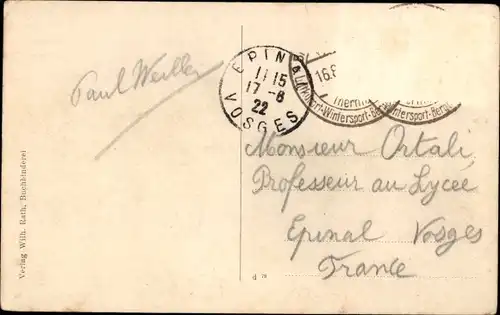 Paul
EPIN
11 15
17-8
22
VOSGES
16.8
Wintersport
Monsieur Ortali
Professeur au Lycée
Epinal Vosges
France
Verlag Wilh. Rath, Buchbinderei